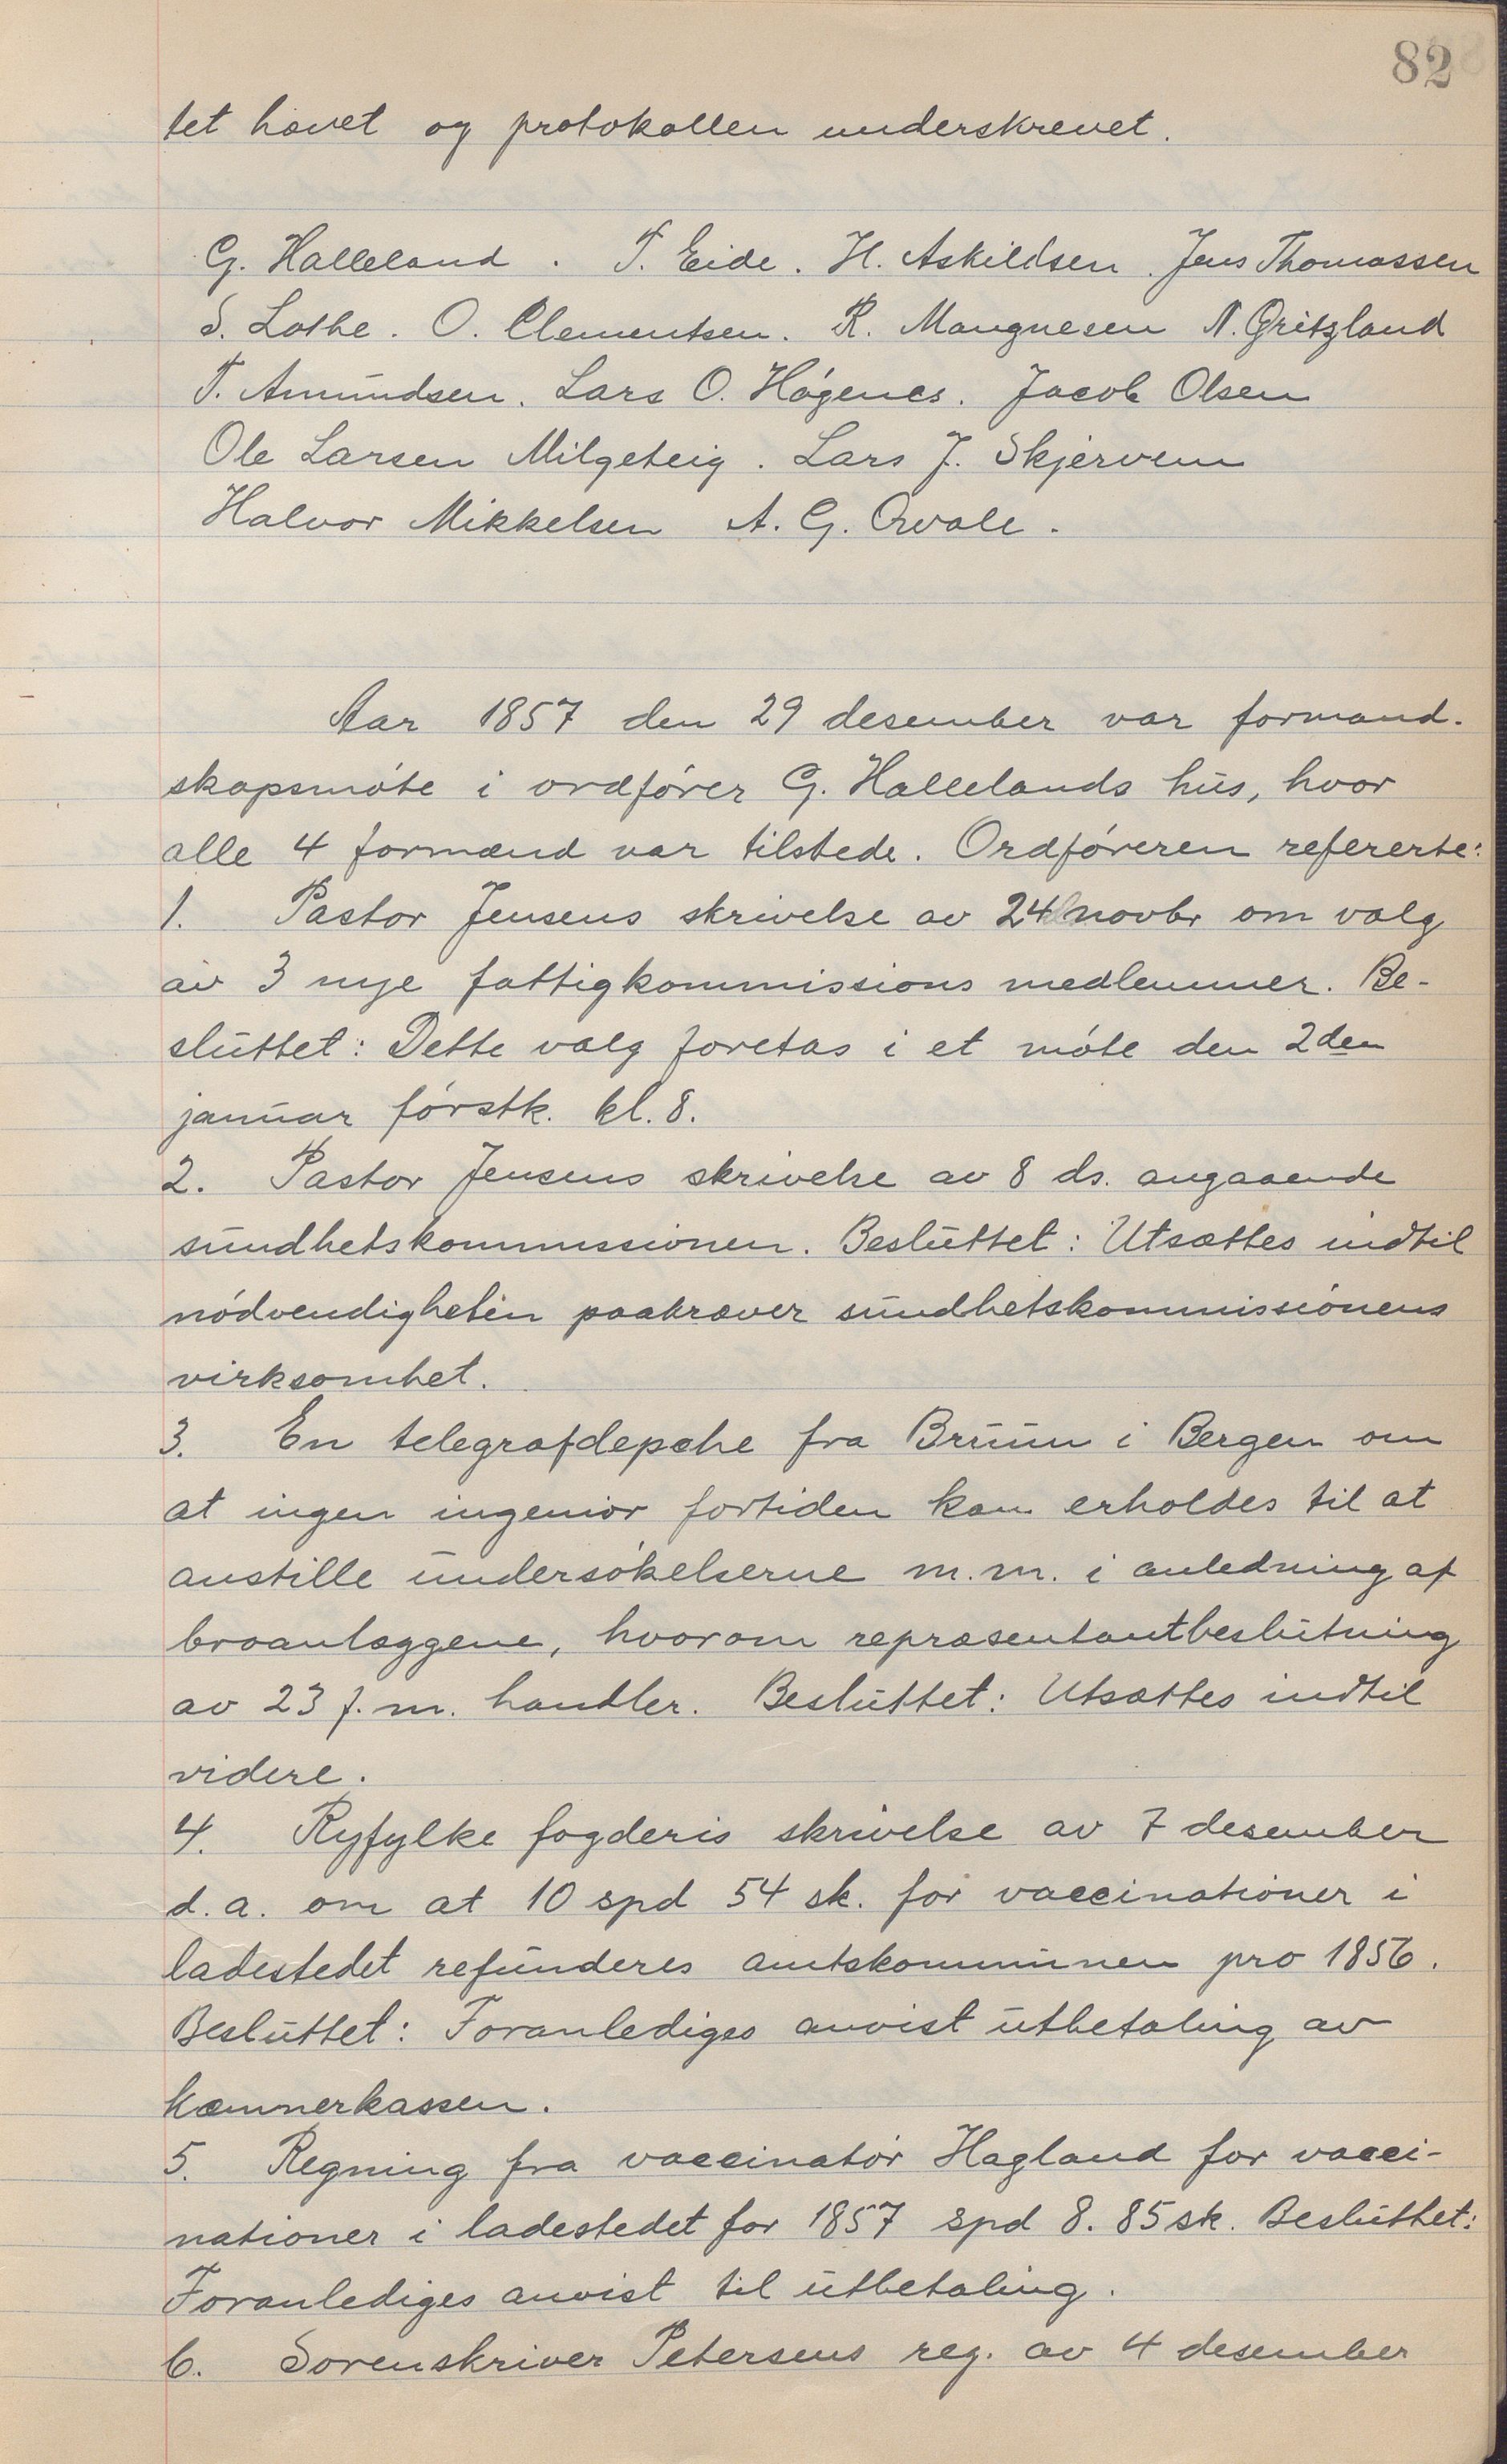 82
tet hævet og protokollen underskrevet.
G. Halleland. T. Eide. H. Askildsen. Jens Thomassen
S. Lothe. O. Clementsen. R. Mangnesen N. Gritzland
T. Amundsen. Lars O. Högenes. Jacob Olsen
Ole Larsen Milgeteig. Lars J. Skjerven
Halvor Mikkelsen A. G. Qvale.
Aar 1857 den 29 desember var formand-
skapsmöte i ordförer G. Hallelands hus, hvor
alle 4 formænd var tilstede. Ordföreren refererte:
1. Pastor Jensens skrivelse av 24 novbr om valg
av 3 nye fattigkommissions medlemmer. Be-
sluttet: Dette valg foretas i et möte den 2den
januar förstk. kl. 8.
2. Pastor Jensens skrivelse av 8 ds. angaaende
sundhetskommissionen. Besluttet: Utsættes indtil
nödvendigheten paakræver sundhetskommissionens
virksomhet.
3. En telegrafdepehe fra Bruun i Bergen om
at ingen ingeniör fortiden kan erholdes til at
anstille undersökelserne m.m. i anledning af
broanlæggene, hvorom repræsentantbeslutning
av 23 f. m. handler. Besluttet: Utsættes indtil
videre.
4. Ryfylke fogderis skrivelse av 7 desember
d.a. om at 10 spd 54 sk. for vaccinationer i
ladestedet refunderes amtskommunen pro 1856.
Besluttet: Foranlediges anvist utbetaling av
kæmnerkassen.
5. Regning fra vaccinatör Hagland for vacci-
nationer i ladestedet for 1857 spd 8. 85 sk. Besluttet:
Foranlediges anvist til utbetaling.
6. Sorenskriver Petersens reg. av 4 desember